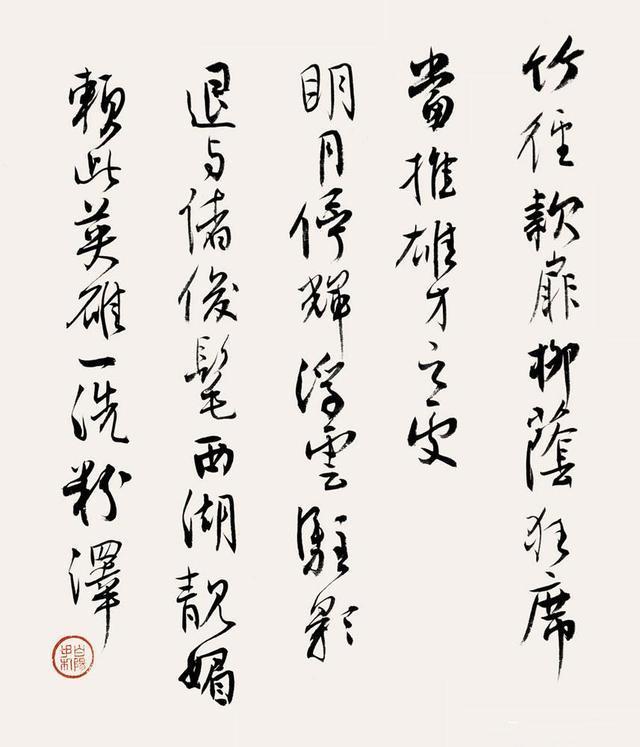 竹徑款扉柳蔭班席
當推雄才之處
明月停輝浮雲駐影
退与諸俊髦西湖靚媚
賴此英雄一洗粉澤